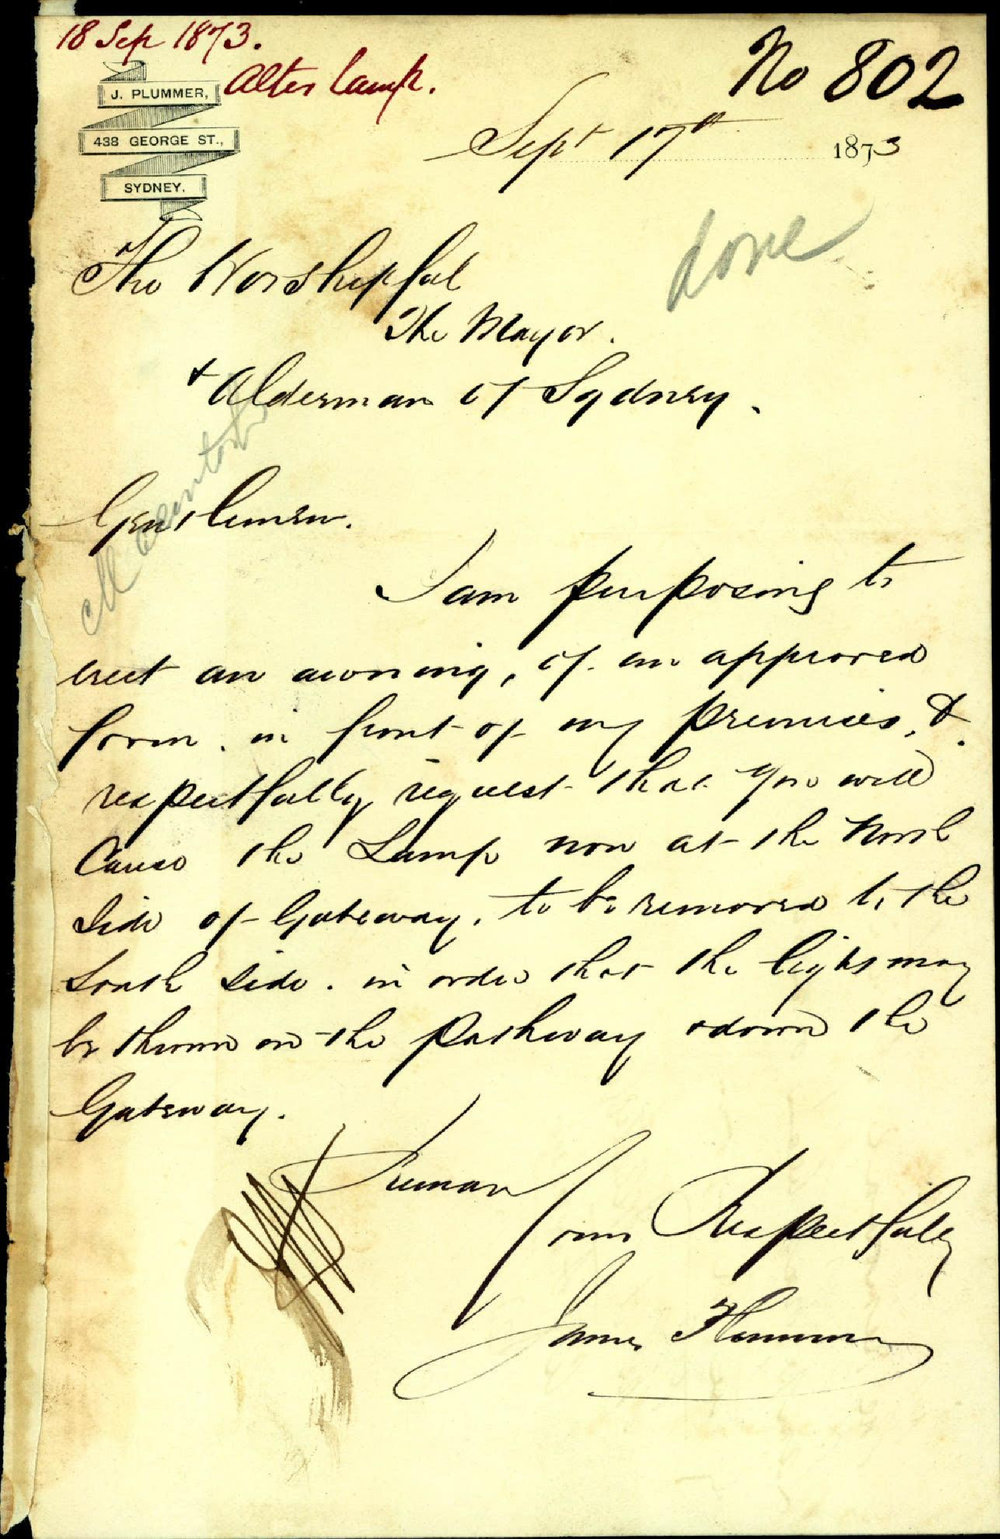 18 Sep 1873.
Alter Lamp.
No 802
J. PLUMMER,
438 GEORGE ST.,
SYDNEY.
Sept 17th 1873
done
The Worshipful
The Mayor.
+ Alderman of Sydney.
Gentlemen.
I am purposing to
erect an awning, of an approved
form. in front of my premises, &
respectfully request that you will
Cause the Lamp now at the North
Side of Gateway. to be removed to the
South Side. in order that the light may
be thrown on the pathway & down the
Gateway.
I remain
Yours Respectfully
James Plummer